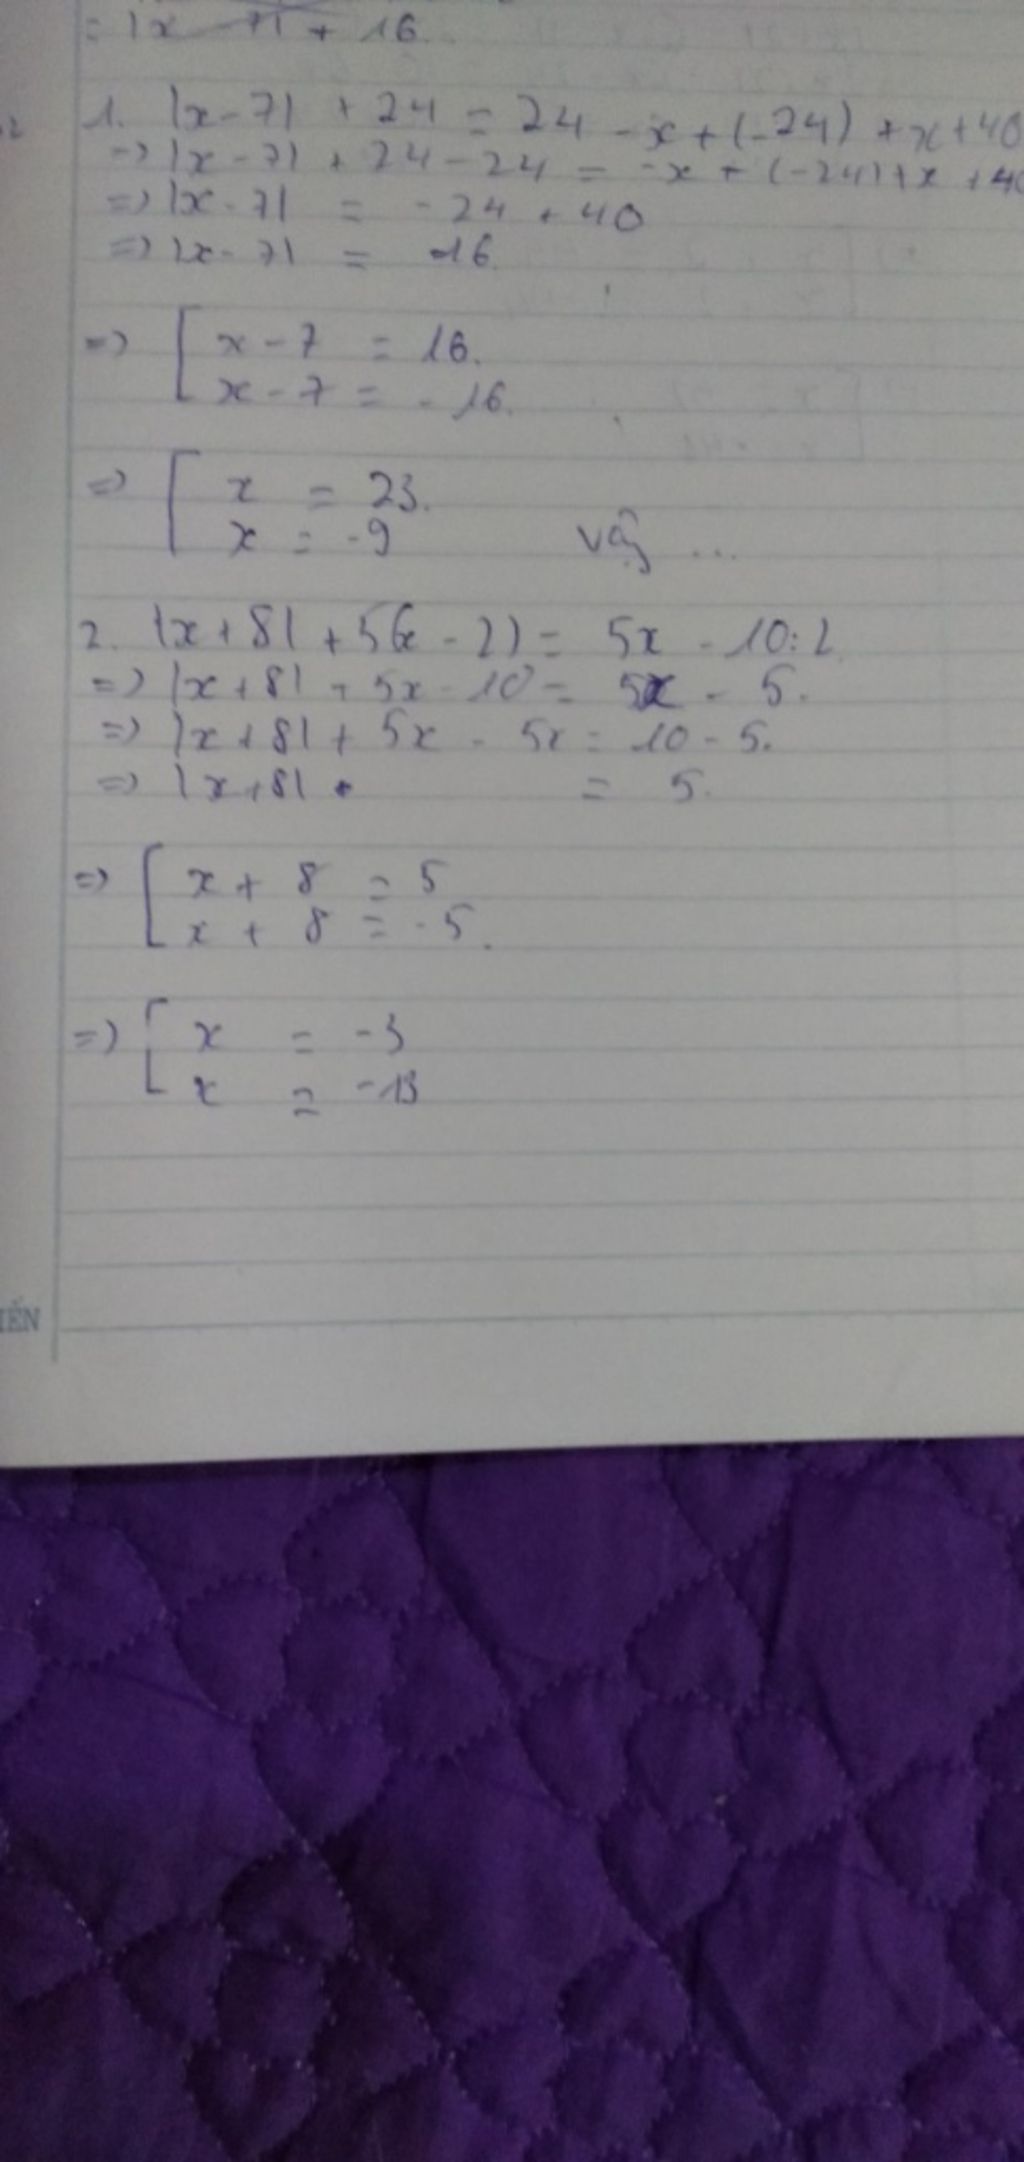 = |x - 7| + 16
1. |x - 7| + 24 = 24 - x + (-24) + x + 40
=> |x - 7| + 24 - 24 = -x + (-24) + x + 40
=> |x - 7| = -24 + 40
=> |x - 7| = 16.
=> [ x - 7 = 16.
x - 7 = -16.
=> [ x = 23.
x = -9 vậy ...
2. |x + 8| + 5(x - 2) = 5x - 10:2
=> |x + 8| + 5x - 10 = 5x - 5.
=> |x + 8| + 5x - 5x = 10 - 5.
=> |x + 8| = 5.
=> [ x + 8 = 5
x + 8 = -5.
=> [ x = -3
x = -13